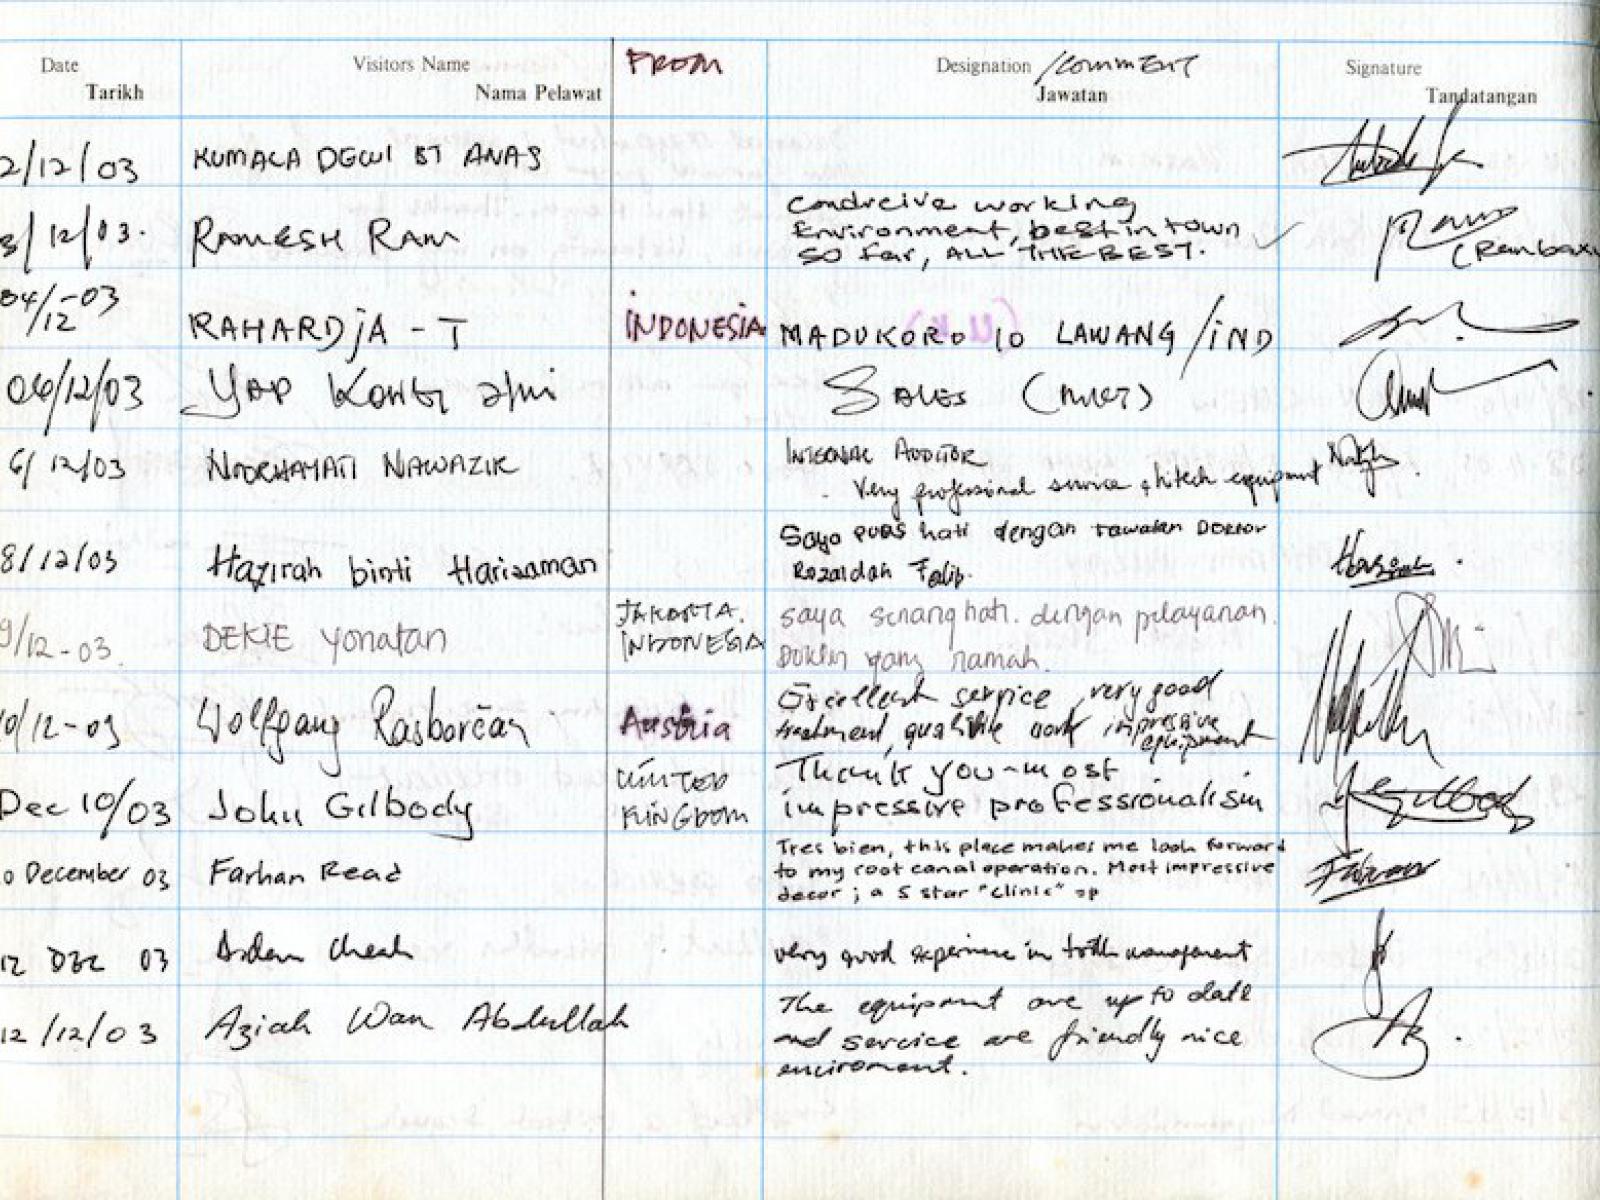 Date Visitors Name FROM Designation /COMMENT Signature
Tarikh Nama Pelawat Jawatan Tandatangan
2/12/03 KUMALA DEWI BT ANAS
3/12/03. RAMESH RAM
Conducive working
Environment, best in town
so far, ALL THE BEST.
04/12-03 RAHARDjA - T iNDONESiA MADUKORO 10 LAWANG /iND
04/12/03 YAP SALES (MKT)
6/12/03 NORHAYATI NAWAZIR
INTERNAL AUDITOR
Very professional service & hitech equipment
8/12/03 Hazirah binti Harizaman
Saya puas hati dengan rawatan Doktor
Rozaidah Talib.
9/12-03. DEKIE yonatan
JAKARTA.
INDONESIA
saya senang hati. dengan pelayanan.
Dokter yang ramah.
10/12-03 Wolfgang Austria
Excellent service, very good
treatment, work impressive
equipment
Dec 10/03 John Gilbody
UNITED
KINGDOM
Thank you - most
impressive professionalism
10 December 03 Farhan Read
Tres bien, this place makes me look forward
to my root canal operation. Most impressive
decor; a 5 star "clinic"
12 DEC 03 Cheah very good experience in tooth management
12/12/03 Aziah Wan Abdullah
The equipment are up to date
and service are friendly nice
enviroment.